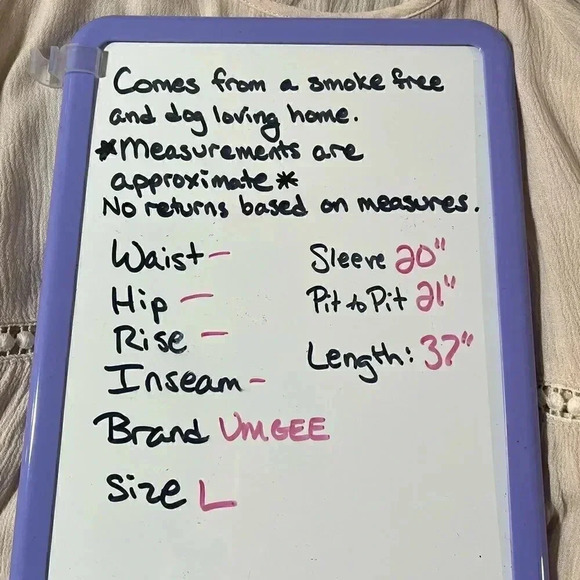 Comes from a smoke free
and dog loving home.
*Measurements are
approximate*
No returns based on measures.
Waist -
Hip -
Rise -
Inseam -
Brand UMGEE
Size L
Sleeve 20"
Pit to Pit 21"
Length: 37"